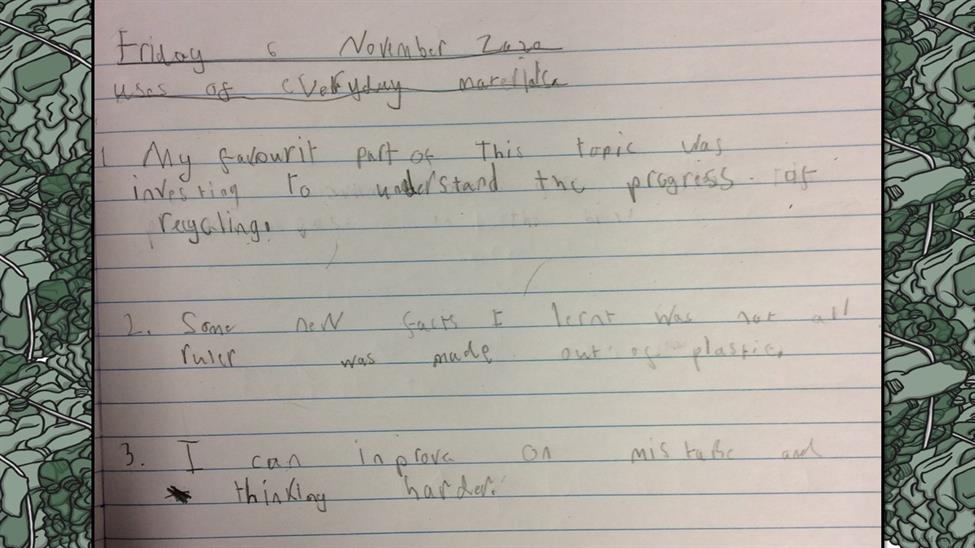 Friday 6 November 2020
uses of everyday
1 My favourit part of this topic was
investing to understand the progress of
recycling.
2. Some new facts I lernt was not all
ruler was made out of plastic.
3. I can inprove on mistake and
thinking harder.